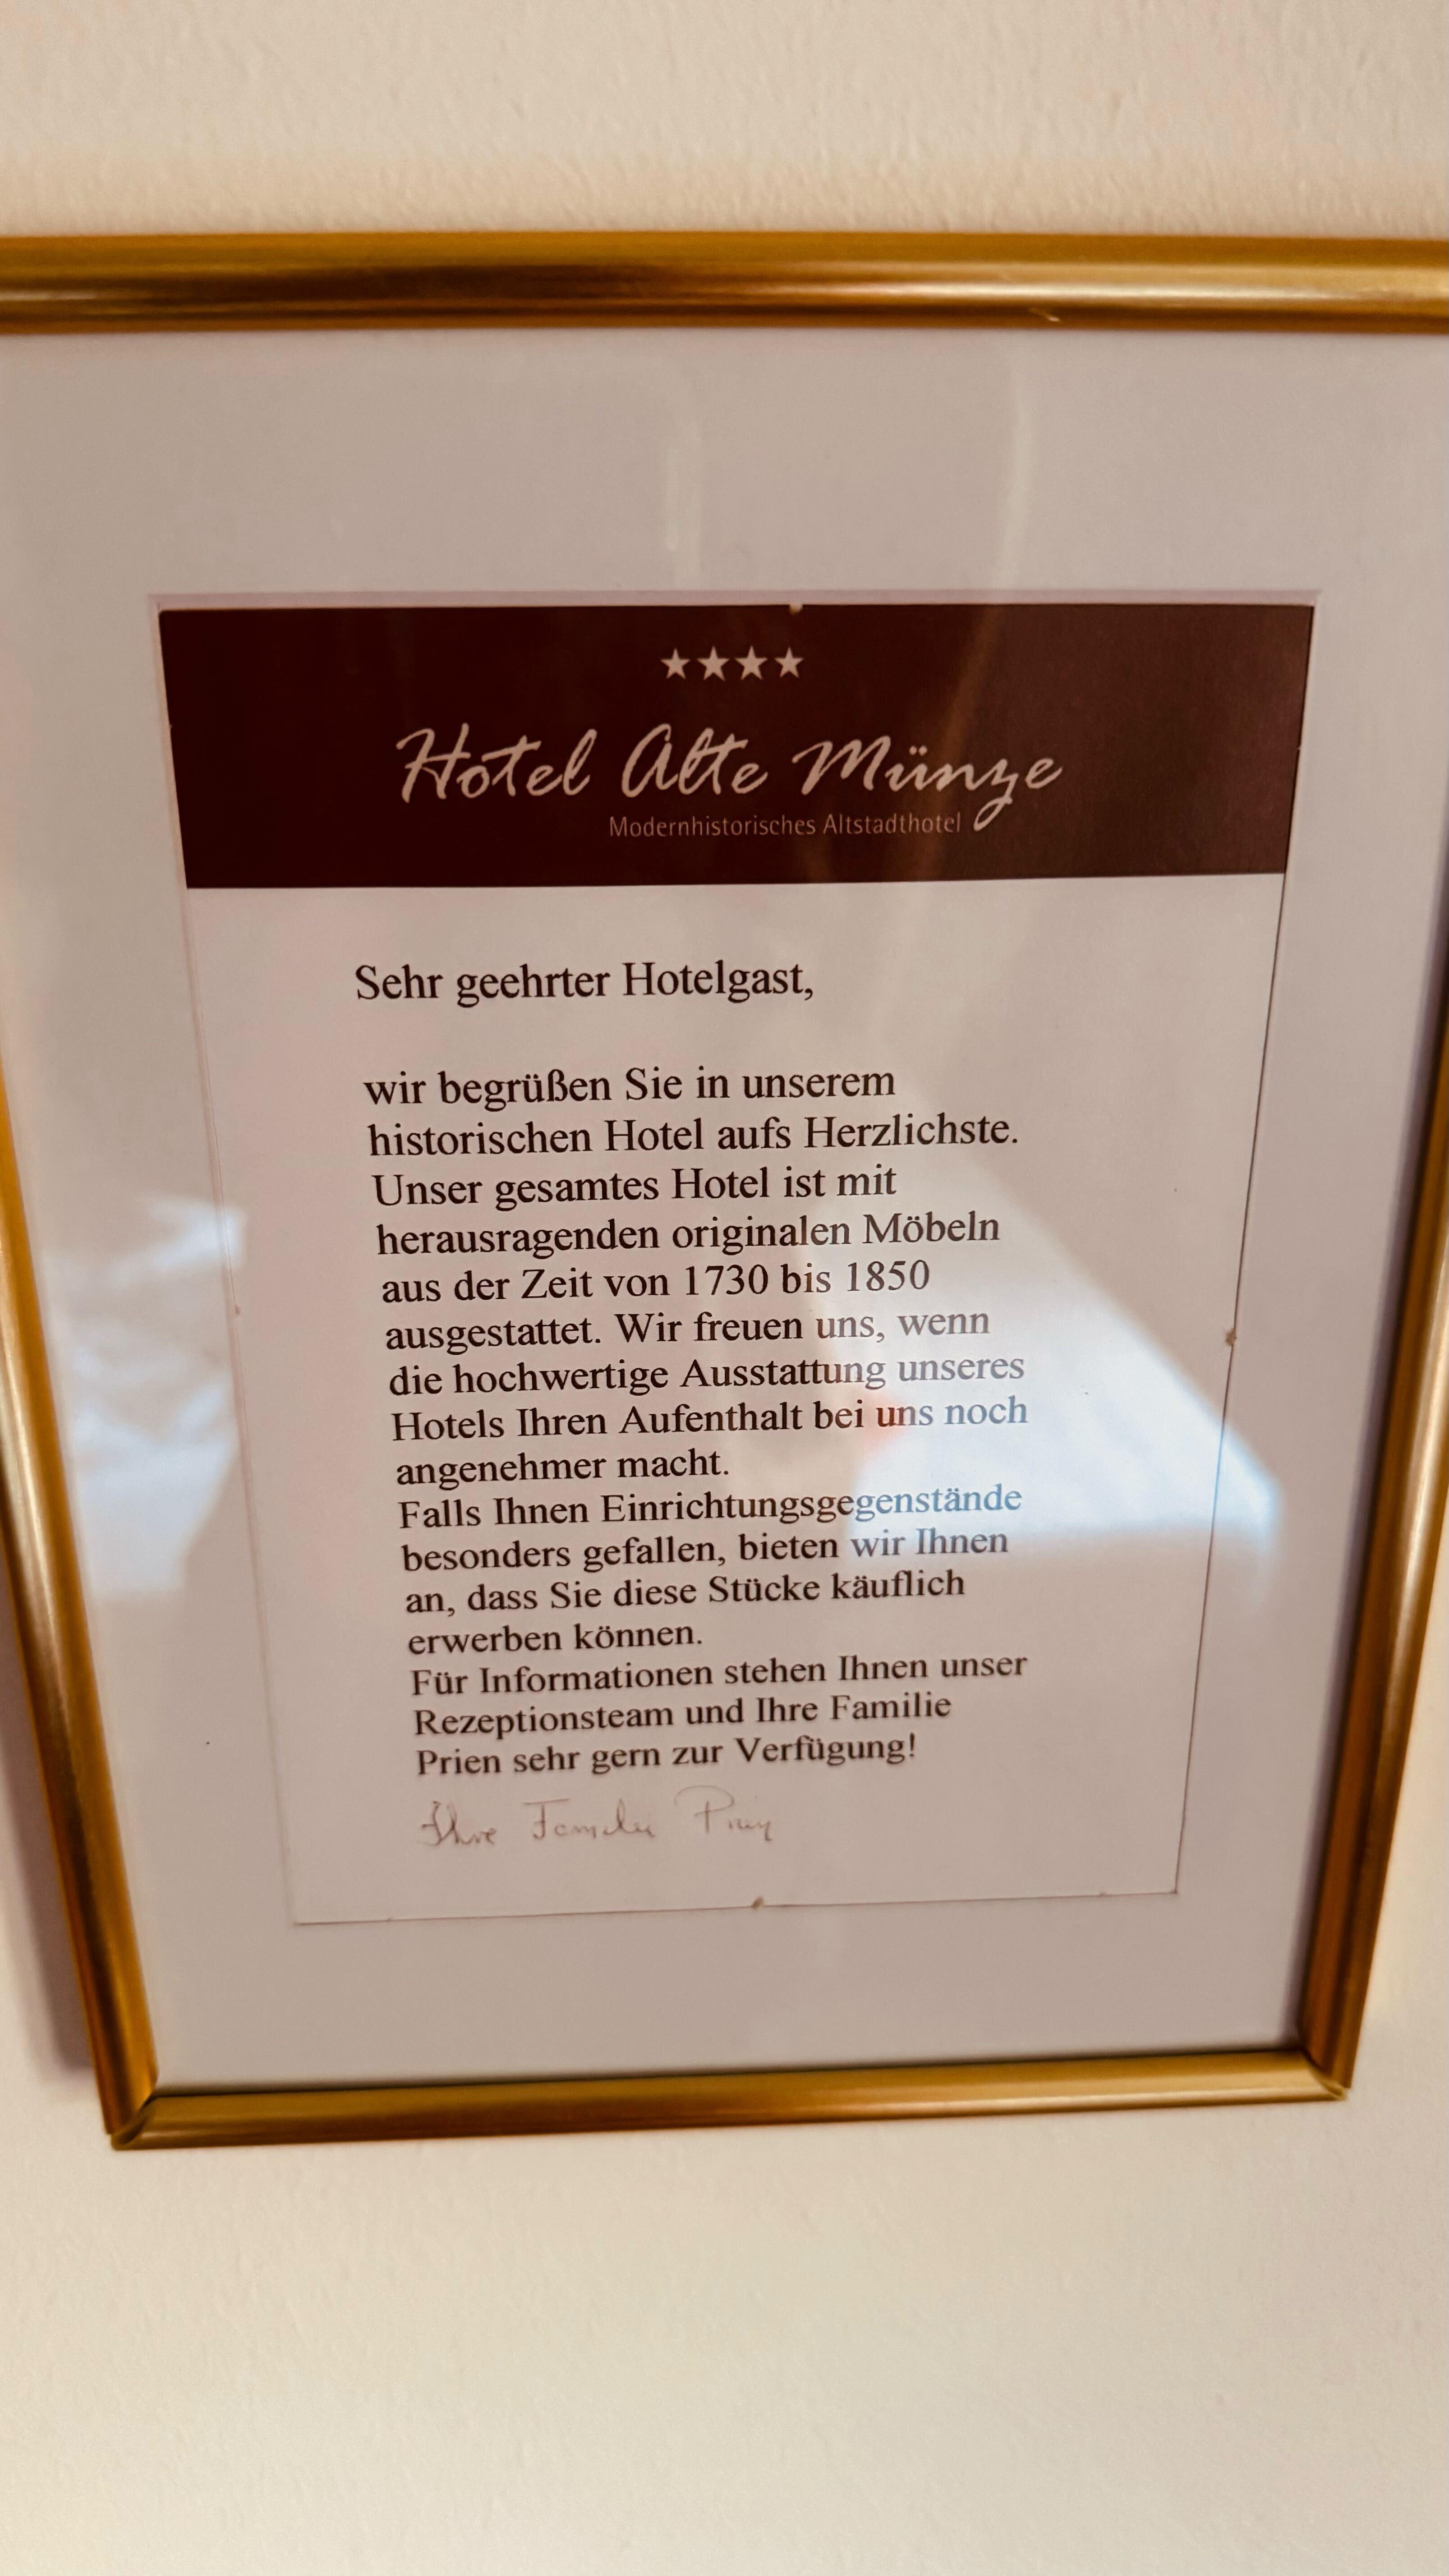 ★★★★
Hotel Alte Münze
Modernhistorisches Altstadthotel
Sehr geehrter Hotelgast,
wir begrüßen Sie in unserem
historischen Hotel aufs Herzlichste.
Unser gesamtes Hotel ist mit
herausragenden originalen Möbeln
aus der Zeit von 1730 bis 1850
ausgestattet. Wir freuen uns, wenn
die hochwertige Ausstattung unseres
Hotels Ihren Aufenthalt bei uns noch
angenehmer macht.
Falls Ihnen Einrichtungsgegenstände
besonders gefallen, bieten wir Ihnen
an, dass Sie diese Stücke käuflich
erwerben können.
Für Informationen stehen Ihnen unser
Rezeptionsteam und Ihre Familie
Prien sehr gern zur Verfügung!
Ihre Familie Prien